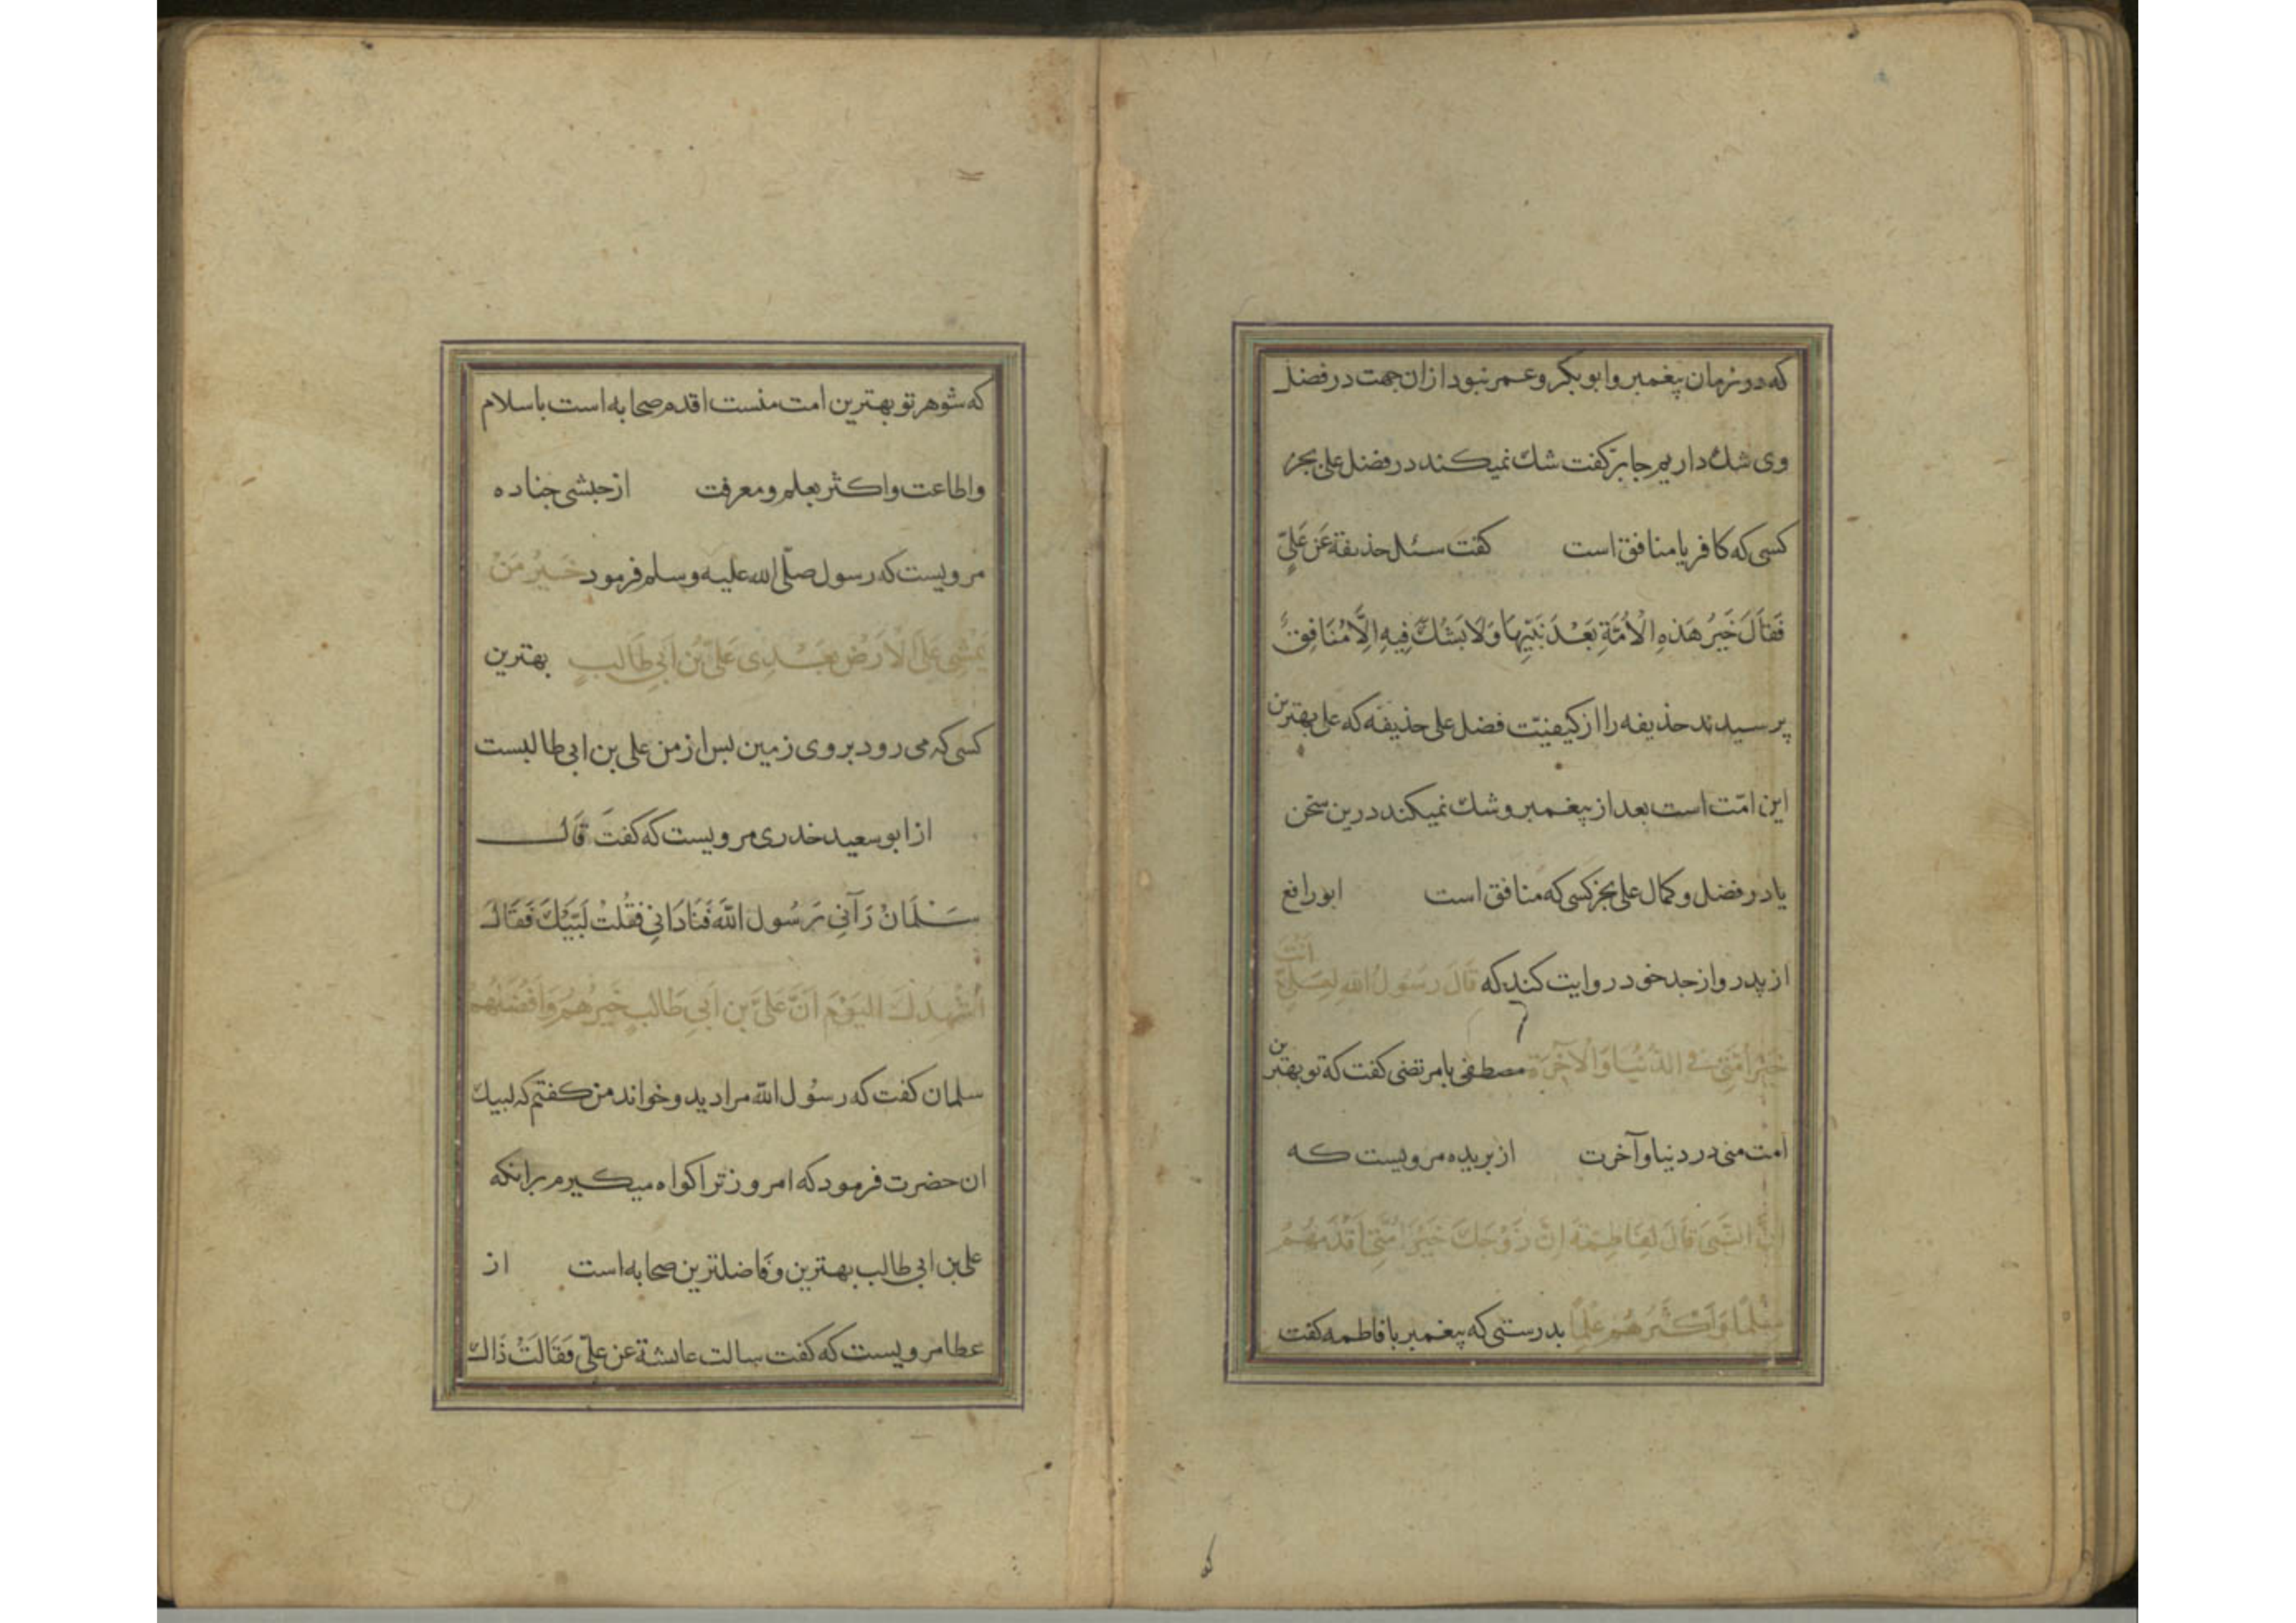 که در زمان پیغمبر وابوبکر وعمر نبود ازان جهت در فضل
وی شك داریم جابر کفت شك نمیکند در فضل علی بجز
کسی که کافر یا منافق است کفت سئل حذيفة عَن عَلِيٍّ
فَقَالَ خَيرُ هَذِهِ الْاُمَّةِ بَعْدَ نَبِيِّهَا وَلَا يَشُكُّ فِيهِ اِلَّا مُنَافِقٌ
پرسیدند حذیفه را از کیفیّت فضل علی حذیفه که علی بهترین
این امّت است بعد از پیغمبر وشك نمیکند درین سخن
یا در فضل وکمال علی بجز کسی که منافق است ابورافع
از پدر واز جد خود روایت کند که قَالَ رَسُولُ اللهِ لِعَلِيٍّ اَنْتَ
خَيْرُ اُمَّتِي فِي الدُّنْيَا وَالْآخِرَةِ مصطفی با مرتضی کفت که تو بهترین
امت منی در دنیا وآخرت از بریده مرویست که
اِنَّ النَّبِيَّ قَالَ لِفَاطِمَةَ اِنَّ زَوْجَكَ خَيْرُ اُمَّتِي اَقْدَمُهُمْ
سِلْمًا وَاَكْثَرُهُمْ عِلْمًا بدرستی که پیغمبر با فاطمه کفت
که شوهر تو بهترین امت منست اقدم صحابه است باسلام
واطاعت واکثر بعلم ومعرفت از حبشی جناده
مرویست که رسول صلّی الله علیه وسلم فرمود خَيْرُ مَنْ
يَمْشِي عَلَى الْاَرْضِ بَعْدِى عَلِيُّ بْنُ اَبِي طَالِبٍ بهترین
کسی که می رود بر وی زمین بس از من علی بن ابی طالبست
از ابو سعید خدری مرویست که کفت قَالَ
سَلْمَانُ رَآنِي رَسُول اللهَ فَنَادَانِي فَقُلْت لَبَّيْكَ فَقَالَ
اُشْهِدُكَ الْيَوْمَ اَنَّ عَلِيَّ بْنَ اَبِي طَالِبٍ خَيْرُهُمْ وَاَفْضَلُهُمْ
سلمان کفت که رسُول الله مرا دید وخواند من کفتم که لبیك
ان حضرت فرمود که امروز ترا کواه میکیرم برانکه
علی بن ابی طالب بهترین وفاضلترین صحابه است از
عطا مرویست که کفت سالت عایشة عن علیّ فَقَالَتْ ذَاكَ